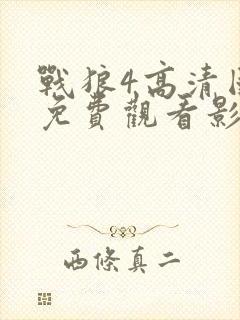 戰狼4高清
免費觀看影
西條真二